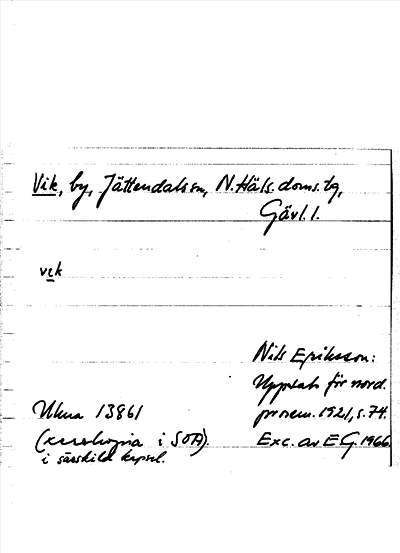 Vik, by, Jättendals sn, N. Häls. doms. tg,
Gävl. l.
vik
Nils Eriksson:
Uppsats för nord.
prosem. 1921, s. 74.
Exc. av EG. 1966.
Ulma 13861
(xeroxkopia i SOA).
i särskild kapsel.